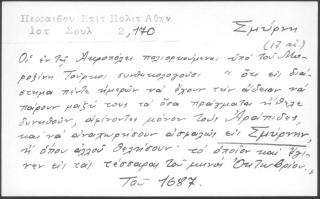 Περραιβού Επιτ Πολιτ Αθην
Ιστ Σουλ 2,170
Σμύρνη
(17 αἰ)
Οἱ ἐν τῇ Ἀκροπόλει πολιορκούμενοι ὑπό τοῦ Μο-
ροζίνη Τοῦρκοι συνθηκολογοῦσι "ὅτι εἰς διά-
στημα πέντε ἡμερῶν νά ἔχουν τήν ἄδειαν νά
πάρουν μαζύ τους τά ὅσα πράγματα ἤθελε
δυνηθοῦν, ἀφίνοντες μόνον τούς Ἀράπιδες,
καί νά ἀναχωρήσουν ἀσφαλῶς εἰς Σμύρνην,
ἤ ὅπου ἀλλοῦ θελήσουν· τό ὁποῖον καί ἔγι-
νεν εἰς τάς τέσσαρας τοῦ μηνός Ὀκτωβρίου,
Τοῦ 1687.